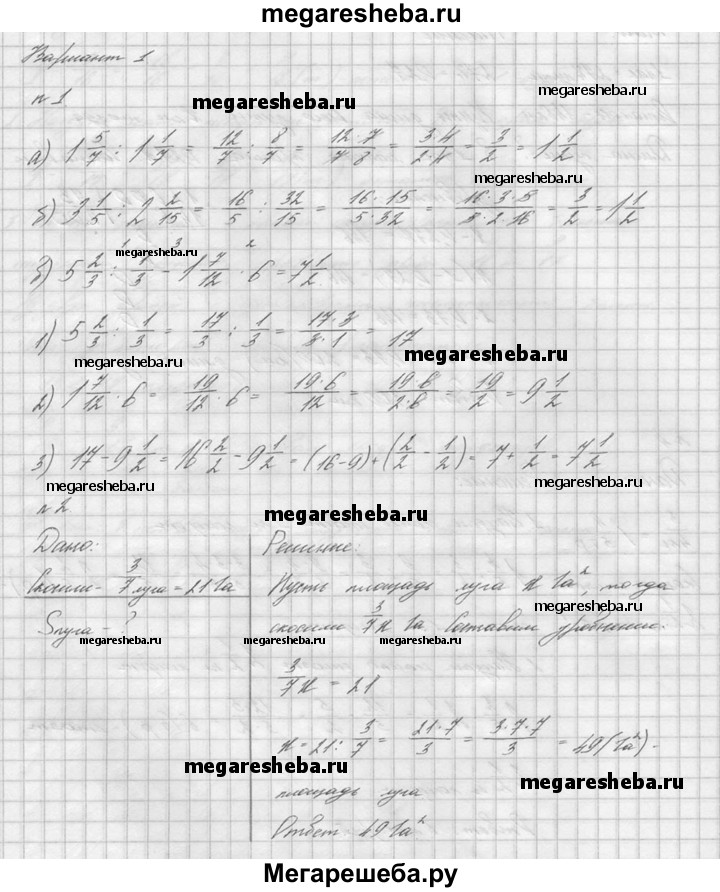 megaresheba.ru
Вариант 1
n 1
megaresheba.ru
megaresheba.ru
а) 1 5/7 : 1 1/7 = 12/7 : 8/7 = 12·7/7·8 = 3·4/2·4 = 3/2 = 1 1/2
megaresheba.ru
б) 3 1/5 : 2 2/15 = 16/5 : 32/15 = 16·15/5·32 = 16·3·5/5·2·16 = 3/2 = 1 1/2
megaresheba.ru
б) 5 2/3 : 1/3 - 1 7/12 · 6 = 7 1/2
1) 5 2/3 : 1/3 = 17/3 : 1/3 = 17·3/3·1 = 17
megaresheba.ru
megaresheba.ru
2) 1 7/12 · 6 = 19/12 · 6 = 19·6/12 = 19·6/2·6 = 19/2 = 9 1/2
3) 17 - 9 1/2 = 16 2/2 - 9 1/2 = (16-9) + (2/2 - 1/2) = 7 + 1/2 = 7 1/2
megaresheba.ru
megaresheba.ru
n 2
megaresheba.ru
Дано:
Решение:
Скосили - 3/7 луга = 21 га
Sлуга - ?
Пусть площадь луга x га², тогда
скосили 3/7 x га Составим уравнение.
megaresheba.ru
megaresheba.ru
megaresheba.ru
3/7 x = 21
x = 21 : 3/7 = 21·7/3 = 3·7·7/3 = 49 (га²) -
megaresheba.ru
megaresheba.ru
megaresheba.ru
площадь луга
Ответ 49 га²
Мегарешеба.ру